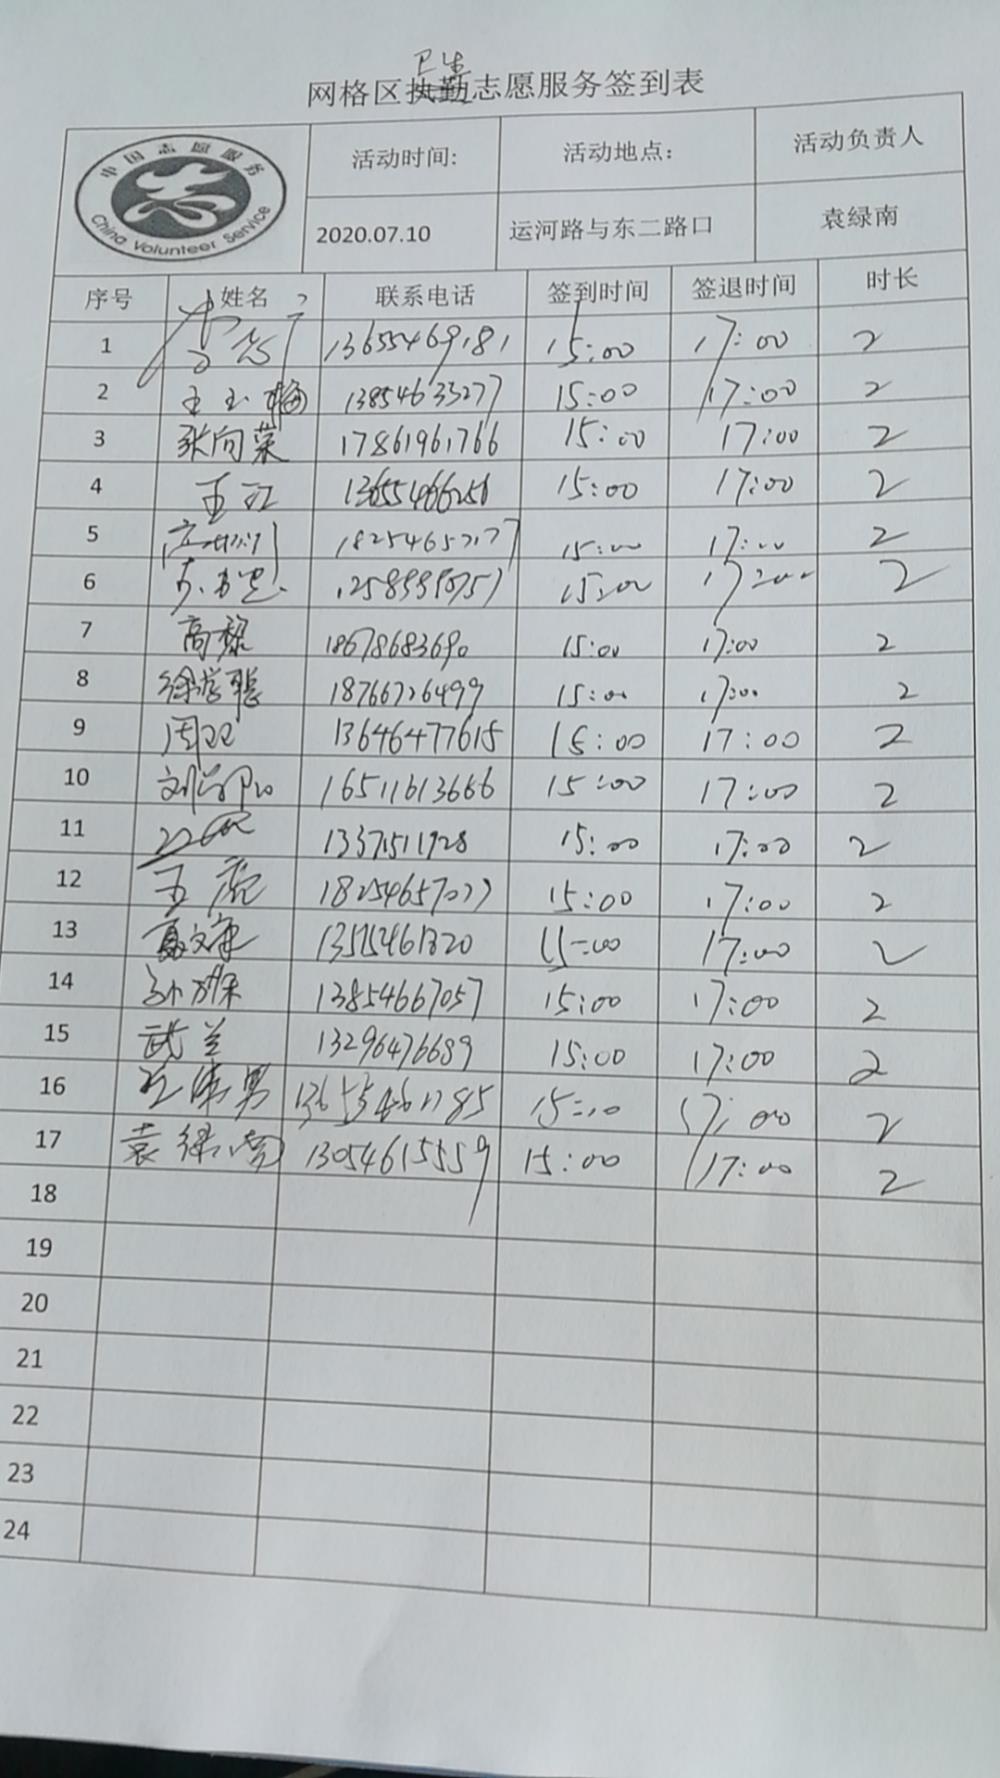 卫生
网格区执勤志愿服务签到表
中国志愿服务
China Volunteer Service
活动时间: 活动地点： 活动负责人
2020.07.10 运河路与东二路口 袁绿南
序号 姓名 联系电话 签到时间 签退时间 时长
1 15:00 17:00 2
2 王玉梅 13854635277 15:00 17:00 2
3 张向荣 17861961766 15:00 17:00 2
4 王红 13655466256 15:00 17:00 2
5 15:00 17:00 2
6 15:00 17:00 2
7 高黎 18678683690 15:00 17:00 2
8 徐学聪 18766726499 15:00 17:00 2
9 周双 13646477615 15:00 17:00 2
10 16511613666 15:00 17:00 2
11 15:00 17:00 2
12 15:00 17:00 2
13 15:00 17:00 2
14 13854667057 15:00 17:00 2
15 武兰 13296476689 15:00 17:00 2
16 17:00 2
17 袁绿南 13054615559 15:00 17:00 2
18
19
20
21
22
23
24